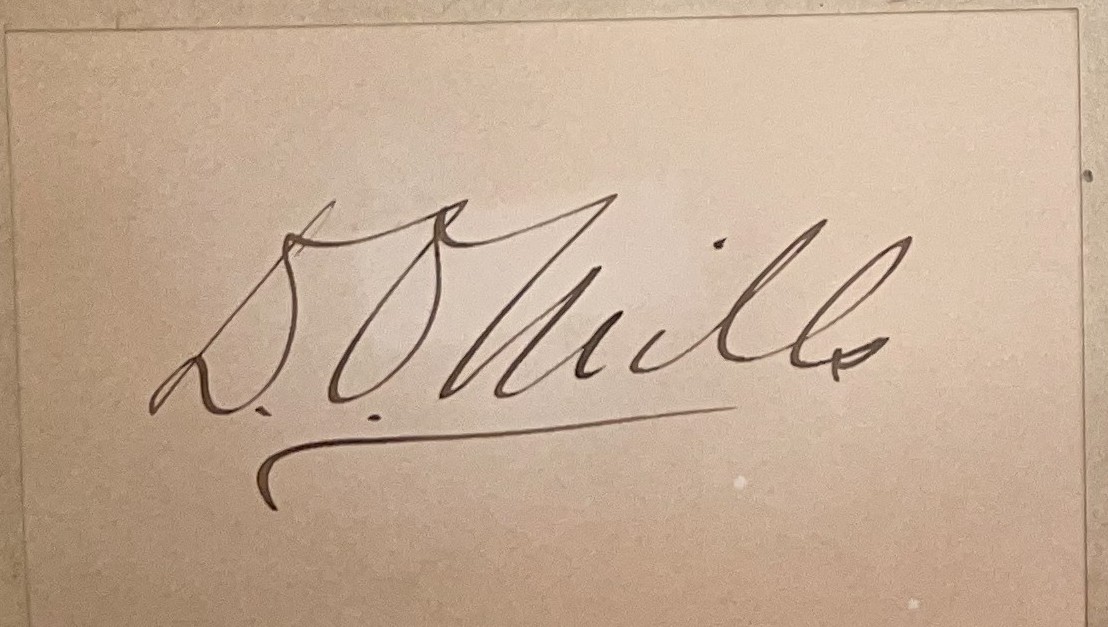 D. O. Mills